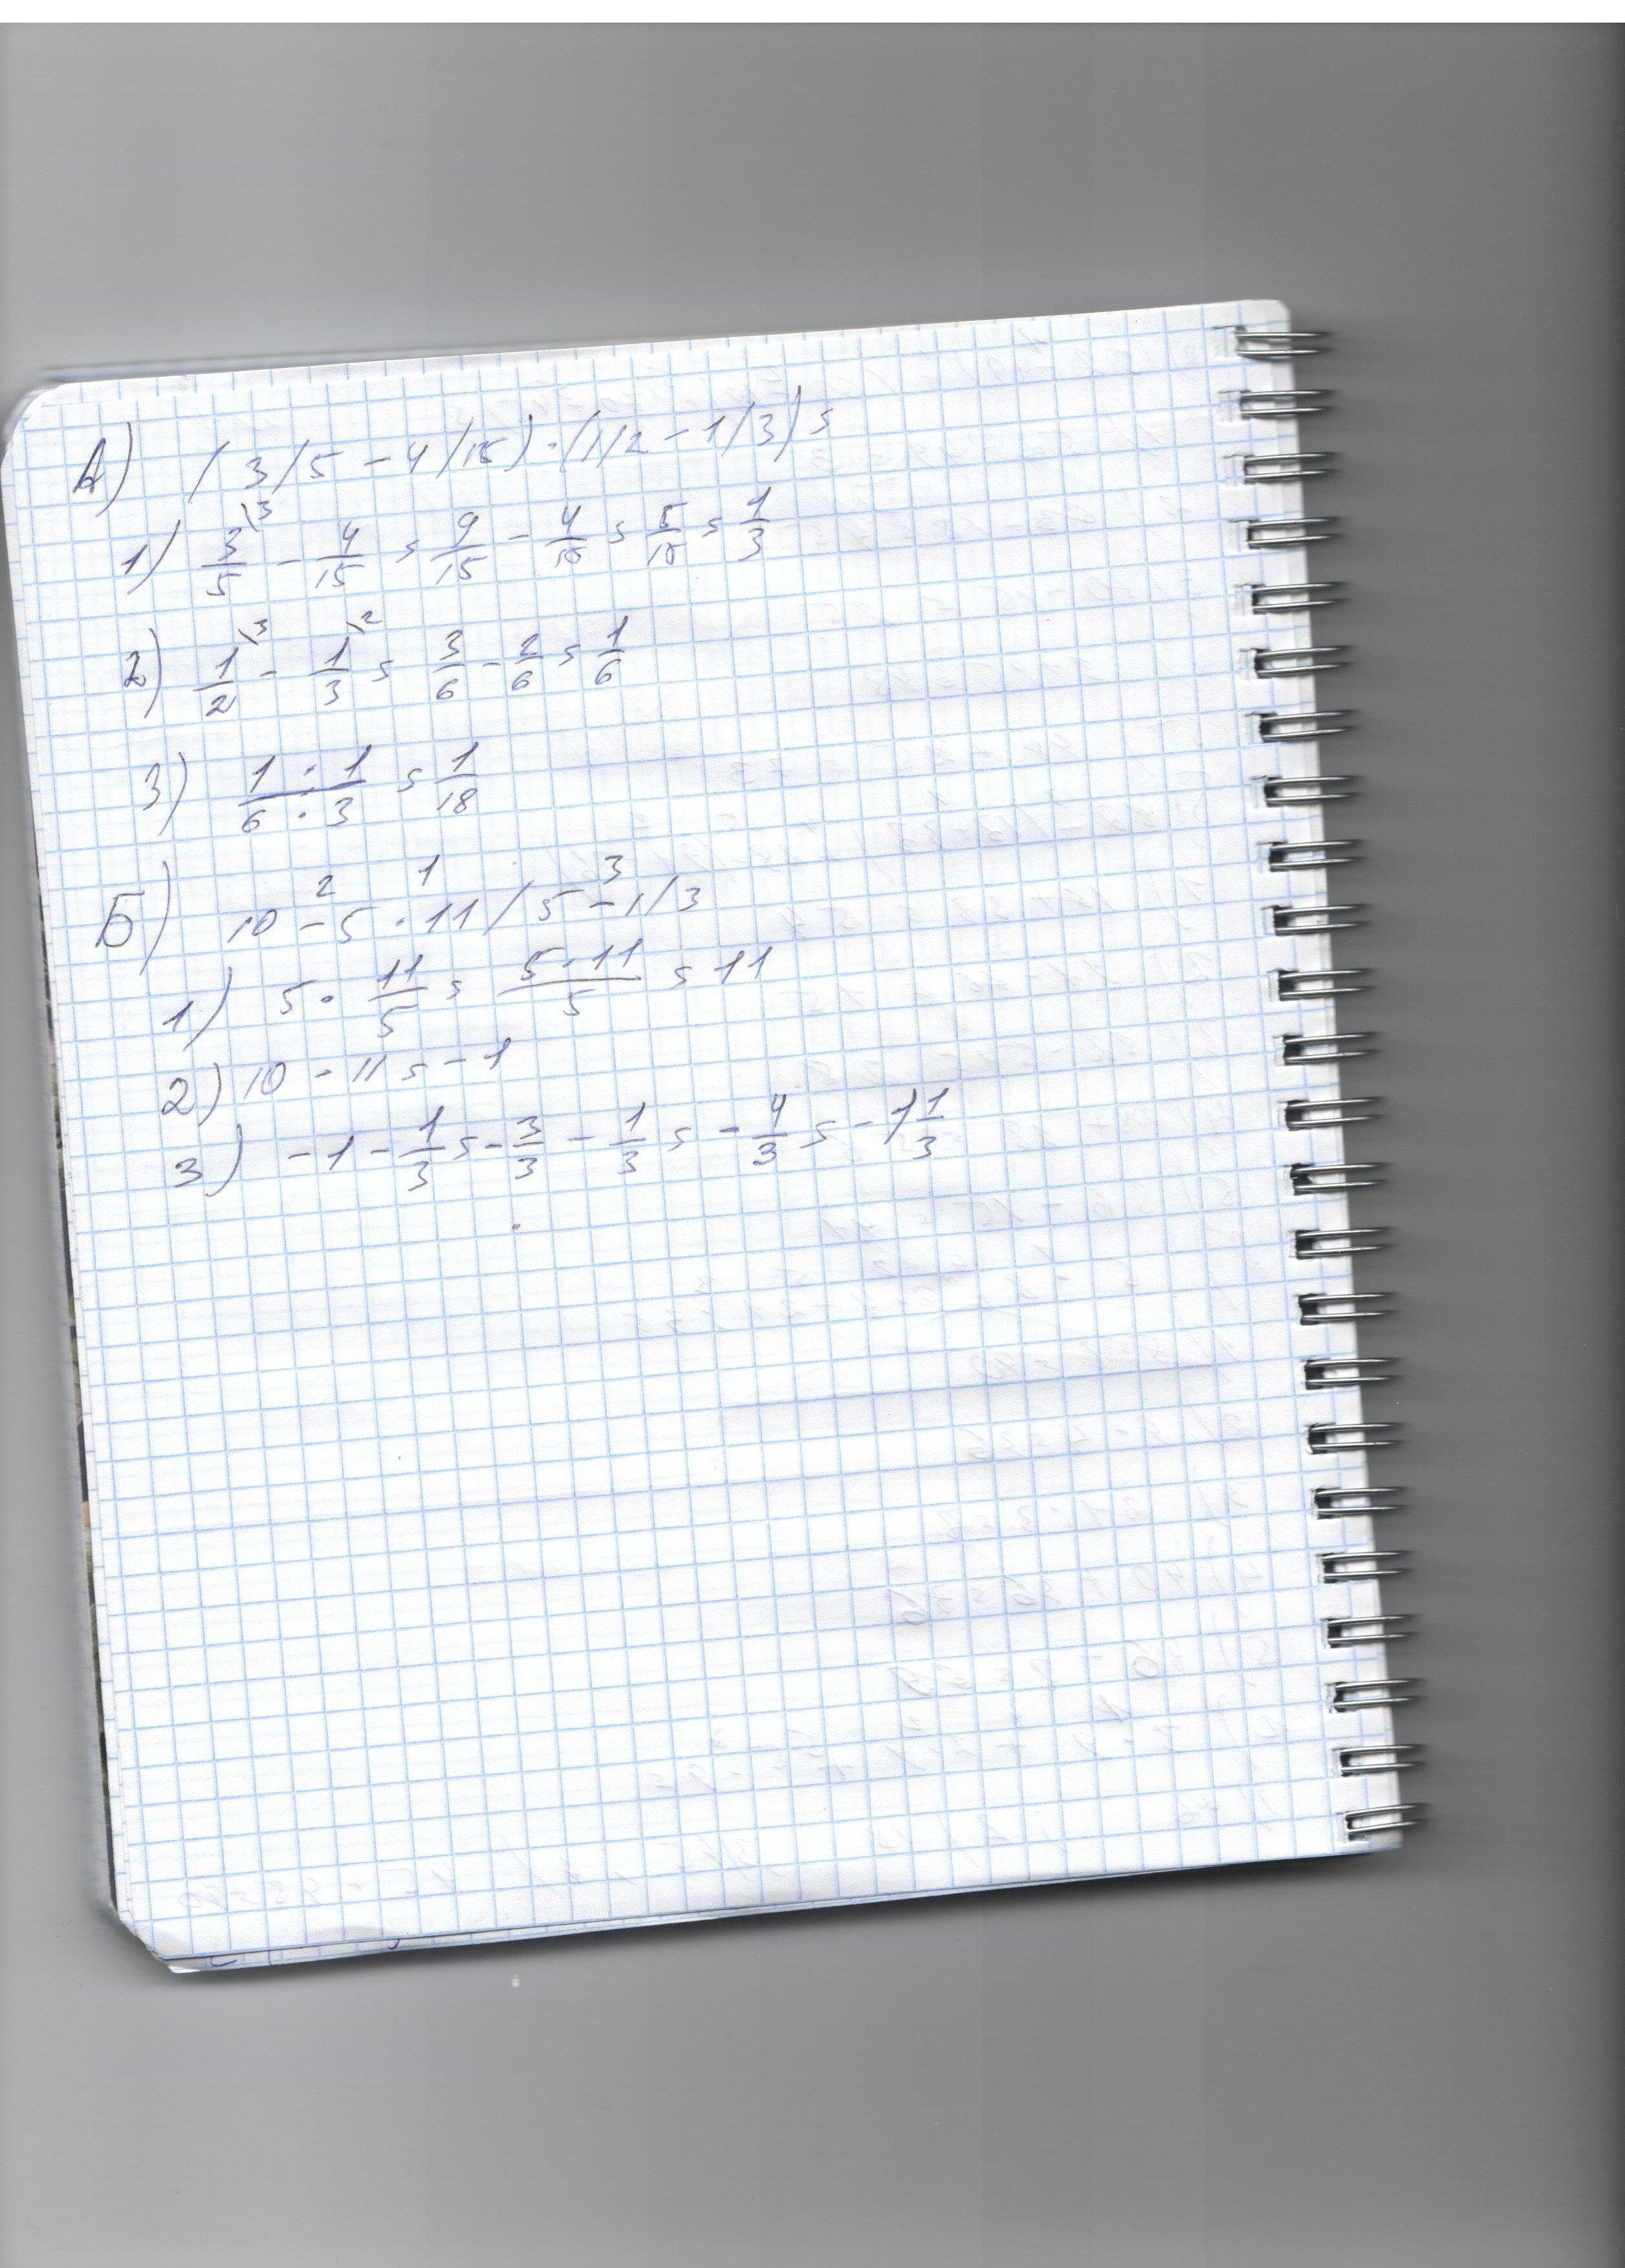 А) (3/5 - 4/15) · (1/2 - 1/3) =
1) 3/5 \3 - 4/15 = 9/15 - 4/15 = 5/15 = 1/3
2) 1/2 \3 - 1/3 \2 = 3/6 - 2/6 = 1/6
3) 1 · 1 / 6 · 3 = 1/18
2 1 3
Б) 10 - 5 · 11/5 - 1/3
1) 5 · 11/5 = 5·11/5 = 11
2) 10 - 11 = -1
3) -1 - 1/3 = -3/3 - 1/3 = -4/3 = -1 1/3